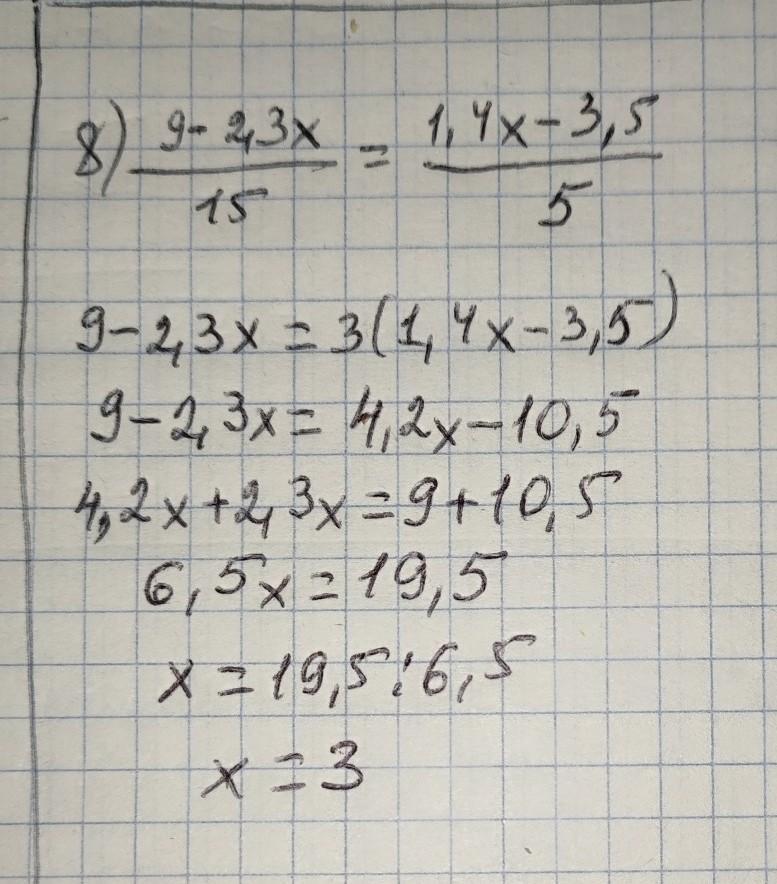 8) (9-2,3x)/15 = (1,4x-3,5)/5
9-2,3x=3(1,4x-3,5)
9-2,3x=4,2x-10,5
4,2x+2,3x=9+10,5
6,5x=19,5
x=19,5:6,5
x=3